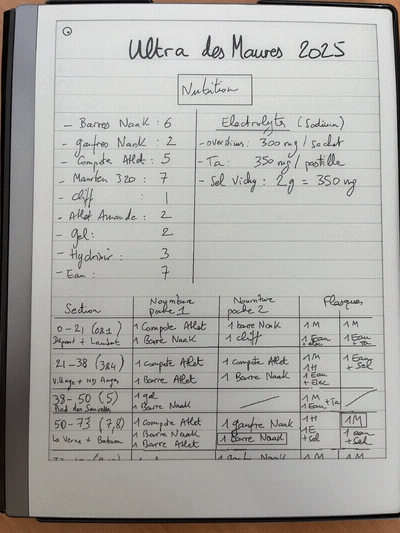 Ultra des Maures 2025
Nutrition
- Barres Naak : 6
- gaufres Naak : 2
- Compote Atlet : 5
- Maurten 320 : 7
- Cliff : 1
- Atlet Amande : 2
- gel : 2
- Hydrixir : 3
- Eau : 7
Electrolytes (Sodium)
- overstims : 300 mg / sachet
- Ta : 350 mg / pastille
- Sel Vichy : 2g = 350 mg
Section Nourriture poche 1 Nourriture poche 2 Flasques
0-21 1 Compote Atlet 1 barre Naak 1 M 1 M
Départ + 1 Barre Naak 1 Cliff 1 Eau 1 Eau
+ elec + Ta
21-38 (384) 1 Compote Atlet 1 Compote Atlet 1 M 1 Eau
1 H + Sel
Village + ND Anges 1 Barre Atlet 1 Barre Naak 1 Eau
+ Elec
38-50 (5) 1 gel 1 M
Pied des 1 Barre Naak 1 Eau + Ta
50-73 (7,8) 1 Compote Atlet 1 gaufre Naak 1 H 1M
La Verne + 1 Barre Naak 1 barre Naak 1 E 1 eau
1 Barre Atlet + sel + sel